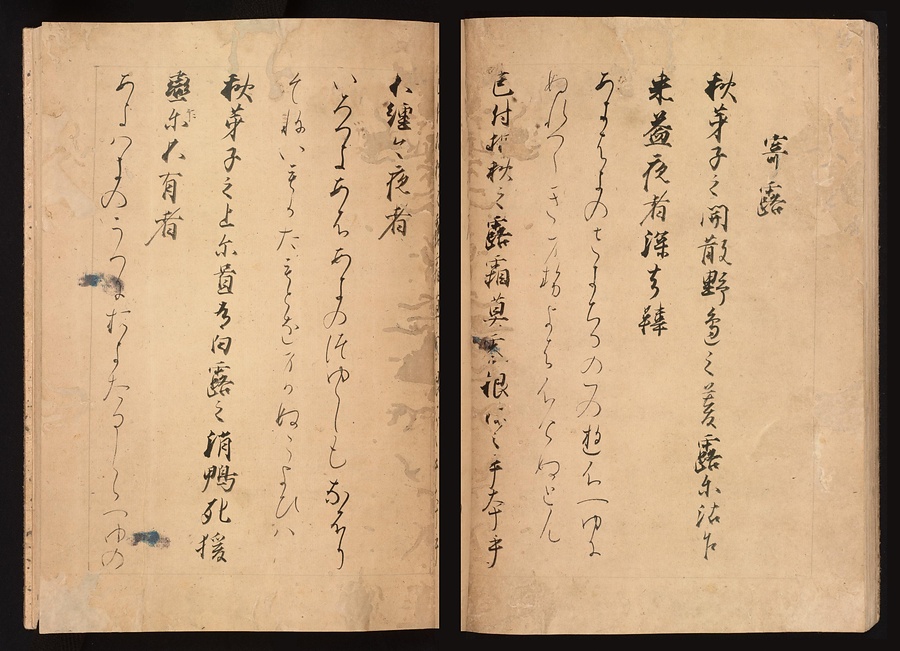 寄露
秋芽子之開散野邊之暮露尓沾乍
来益夜者深去鞆
あきはきのさきちるのゝへのゆふつゆに
ぬれつゝきませよはふけぬとん
色付相秋之露霜莫零根妹之手本乎
不纒今夜者
いろつきあふあきのつゆしもなふり
そねいもかたもとをまかぬこよひは
秋芽子之上尓置有白露之消鴨死援
戀尓不有者
あきはきのうへにおきたるしらつゆの